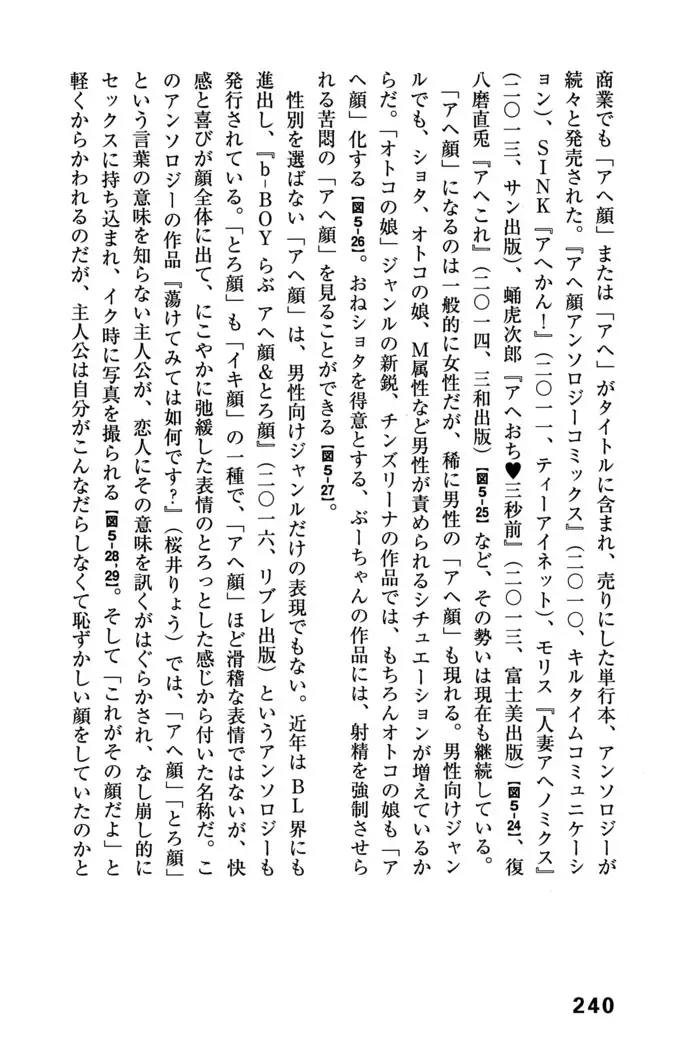 商業でも「アヘ顔」または「アヘ」がタイトルに含まれ、売りにした単行本、アンソロジーが
続々と発売された。『アヘ顔アンソロジーコミックス』（二〇一〇、キルタイムコミュニケーシ
ョン）、SINK『アヘかん！』（二〇一一、ティーアイネット）、モリス『人妻アヘノミクス』
（二〇一三、サン出版）、蛹虎次郎『アヘおち♥三秒前』（二〇一三、富士美出版）【図5-24】、復
八磨直兎『アヘこれ』（二〇一四、三和出版）【図5-25】など、その勢いは現在も継続している。
「アヘ顔」になるのは一般的に女性だが、稀に男性の「アヘ顔」も現れる。男性向けジャン
ルでも、ショタ、オトコの娘、M属性など男性が責められるシチュエーションが増えているか
らだ。「オトコの娘」ジャンルの新鋭、チンズリーナの作品では、もちろんオトコの娘も「ア
ヘ顔」化する【図5-26】。おねショタを得意とする、ぶーちゃんの作品には、射精を強制させら
れる苦悶の「アヘ顔」を見ることができる【図5-27】。
性別を選ばない「アヘ顔」は、男性向けジャンルだけの表現でもない。近年はBL界にも
進出し、『b-BOYらぶ アヘ顔&とろ顔』（二〇一六、リブレ出版）というアンソロジーも
発行されている。「とろ顔」も「イキ顔」の一種で、「アヘ顔」ほど滑稽な表情ではないが、快
感と喜びが顔全体に出て、にこやかに弛緩した表情のとろっとした感じから付いた名称だ。こ
のアンソロジーの作品『蕩けてみては如何です？』（桜井りょう）では、「アヘ顔」「とろ顔」
という言葉の意味を知らない主人公が、恋人にその意味を訊くがはぐらかされ、なし崩し的に
セックスに持ち込まれ、イク時に写真を撮られる【図5-28-29】。そして「これがその顔だよ」と
軽くからかわれるのだが、主人公は自分がこんなだらしなくて恥ずかしい顔をしていたのかと
240